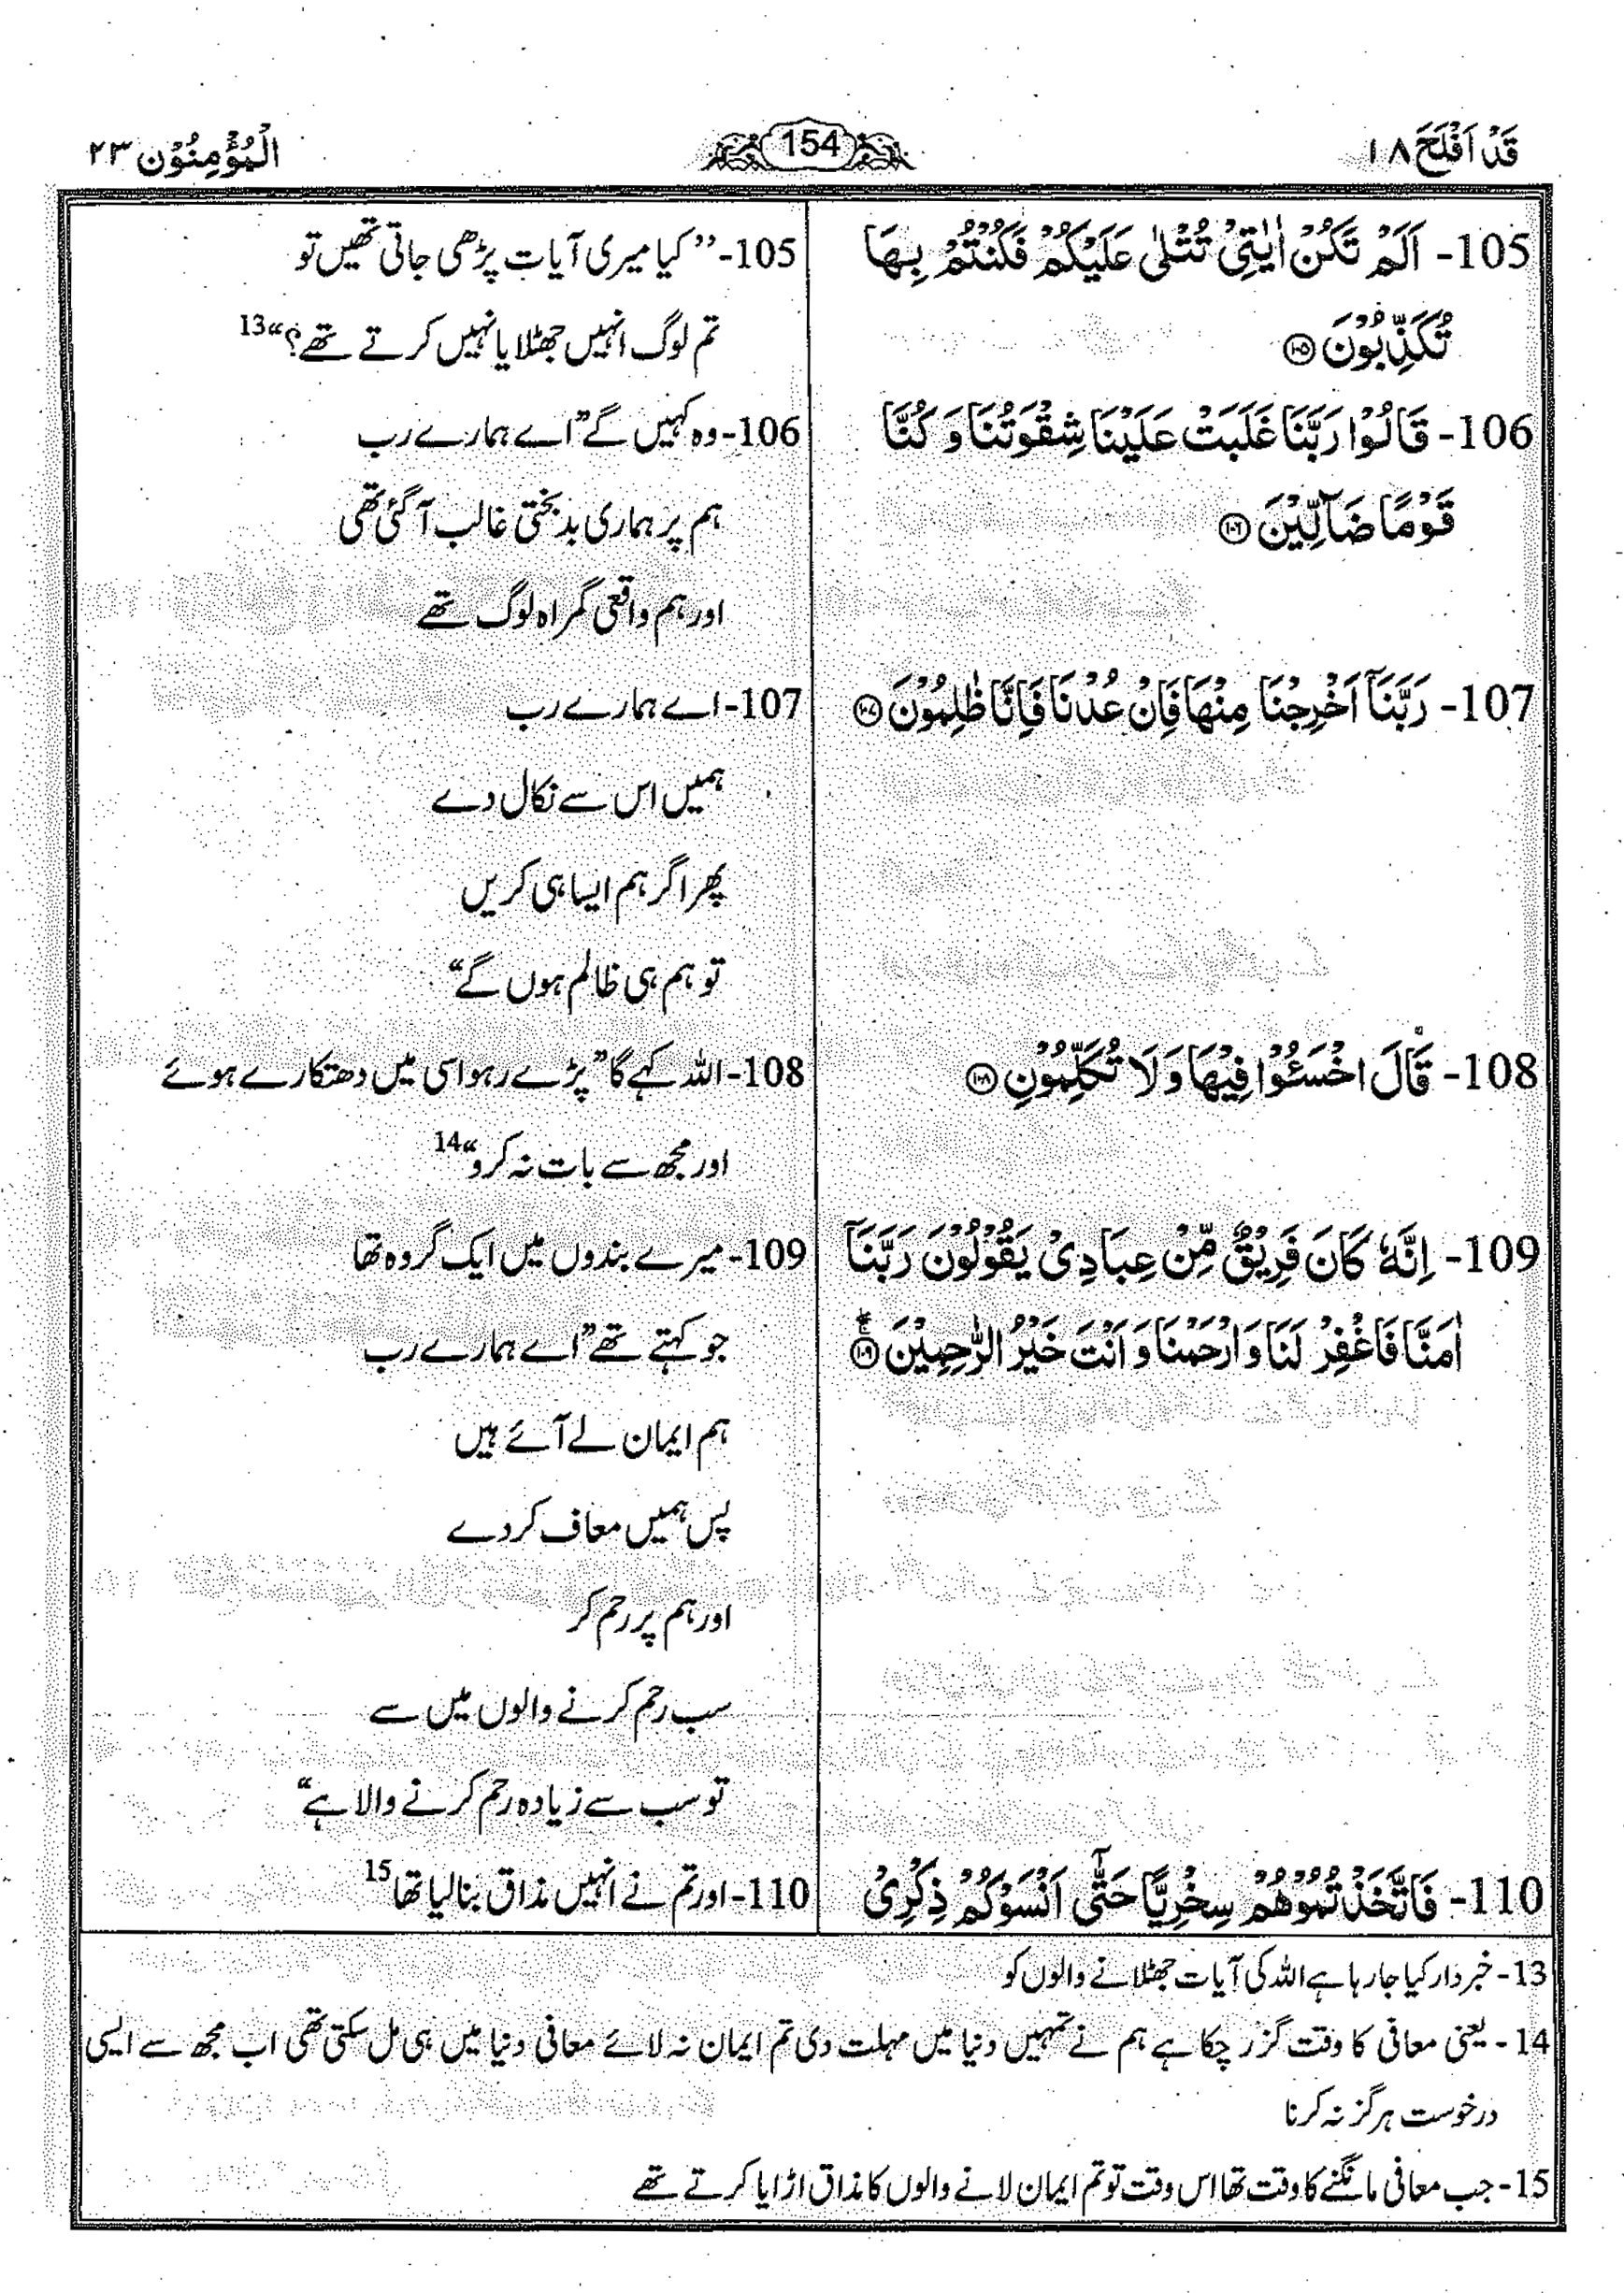 قَدْ اَفْلَحَ ۱۸
154
الْمُؤْمِنُوْن ۲۳
105- اَلَمْ تَكُنْ اٰيٰتِيْ تُتْلٰى عَلَيْكُمْ فَكُنْتُمْ بِهَا
تُكَذِّبُوْنَ ۝۱۰۵
106- قَالُوْا رَبَّنَا غَلَبَتْ عَلَيْنَا شِقْوَتُنَا وَ كُنَّا
قَوْمًا ضَآلِّيْنَ ۝۱۰۶
107- رَبَّنَآ اَخْرِجْنَا مِنْهَا فَاِنْ عُدْنَا فَاِنَّا ظٰلِمُوْنَ ۝۱۰۷
108- قَالَ اخْسَـُٔوْا فِيْهَا وَ لَا تُكَلِّمُوْنِ ۝۱۰۸
109- اِنَّهٗ كَانَ فَرِيْقٌ مِّنْ عِبَادِيْ يَقُوْلُوْنَ رَبَّنَآ
اٰمَنَّا فَاغْفِرْ لَنَا وَ ارْحَمْنَا وَ اَنْتَ خَيْرُ الرّٰحِمِيْنَ ۝۱۰۹
110- فَاتَّخَذْتُمُوْهُمْ سِخْرِيًّا حَتّٰٓى اَنْسَوْكُمْ ذِكْرِيْ
105- ”کیا میری آیات پڑھی جاتی تھیں تو
تم لوگ انہیں جھٹلایا نہیں کرتے تھے؟“13
106- وہ کہیں گے ”اے ہمارے رب
ہم پر ہماری بدبختی غالب آگئی تھی
اور ہم واقعی گمراہ لوگ تھے
107- اے ہمارے رب
ہمیں اس سے نکال دے
پھر اگر ہم ایسا ہی کریں
تو ہم ہی ظالم ہوں گے“
108- اللہ کہے گا ”پڑے رہو اسی میں دھتکارے ہوئے
اور مجھ سے بات نہ کرو“14
109- میرے بندوں میں ایک گروہ تھا
جو کہتے تھے ”اے ہمارے رب
ہم ایمان لے آئے ہیں
پس ہمیں معاف کردے
اور ہم پر رحم کر
سب رحم کرنے والوں میں سے
تو سب سے زیادہ رحم کرنے والا ہے“
110- اور تم نے انہیں مذاق بنا لیا تھا15
13- خبردار کیا جا رہا ہے اللہ کی آیات جھٹلانے والوں کو
14- یعنی معافی کا وقت گزر چکا ہے ہم نے تمہیں دنیا میں مہلت دی تم ایمان نہ لائے معافی دنیا میں ہی مل سکتی تھی اب مجھ سے ایسی
درخوست ہرگز نہ کرنا
15- جب معافی مانگنے کا وقت تھا اس وقت تو تم ایمان لانے والوں کا مذاق اڑایا کرتے تھے